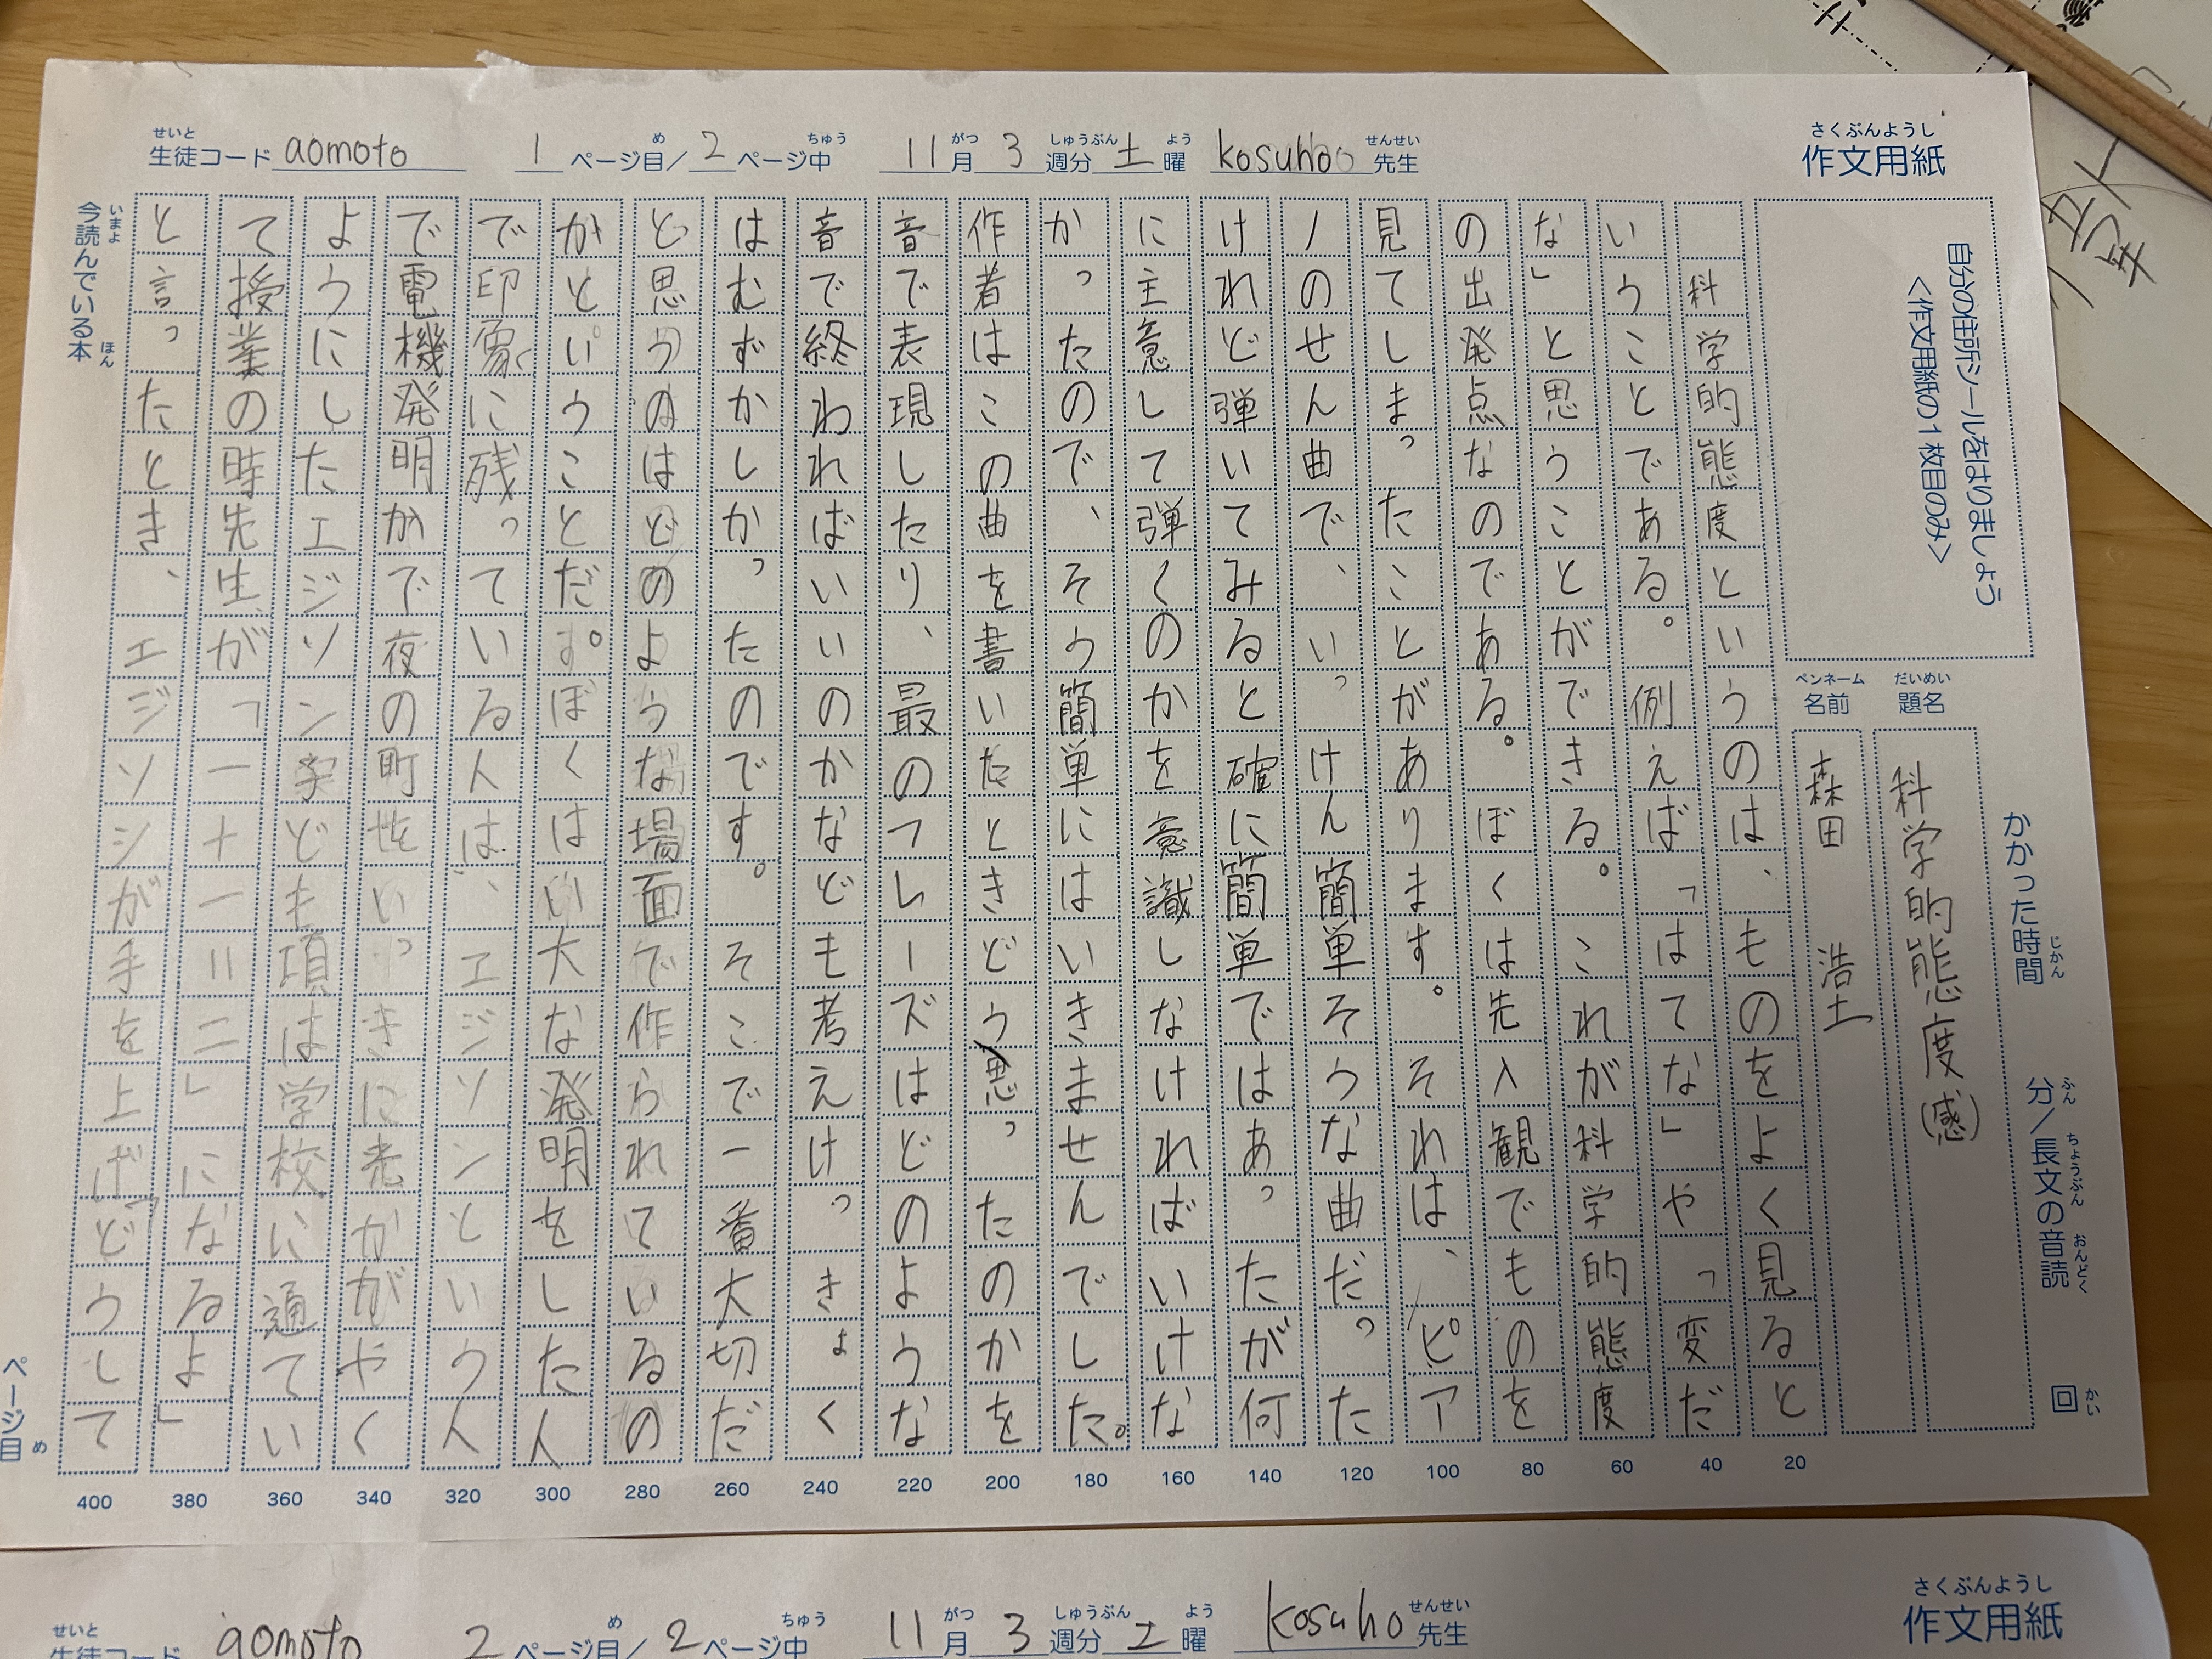 作文用紙
さくぶんようし
生徒コード aomoto 1 ページ目/2 ページ中 11月 3 週分 土 曜 kosuho 先生
せいと め ちゅう がつ しゅうぶん よう せんせい
自分の住所シールをはりましょう
<作文用紙の1枚目のみ>
かかった時間 分/長文の音読 回
じかん ふん ちょうぶん おんどく かい
題名 科学的態度(感)
だいめい
名前 森田 浩士
ペンネーム
科学的態度というのは、ものをよく見ると
いうことである。例えば「はてな」や「変だ
な」と思うことができる。これが科学的態度
の出発点なのである。ぼくは先入観でものを
見てしまったことがあります。それは、ピア
ノのせん曲で、いっけん簡単そうな曲だった
けれど弾いてみると確に簡単ではあったが何
に主意して弾くのかを意識しなければいけな
かったので、そう簡単にはいきませんでした。
作者はこの曲を書いたときどう思ったのかを
音で表現したり、最のフレーズはどのような
音で終わればいいのかなども考えけっきょく
はむずかしかったのです。そこで一番大切だ
と思うのはどのような場面で作られているの
かということだ。ぼくはい大な発明をした人
で印象に残っている人は、エジソンという人
で電機発明かで夜の町をいっきに光かがやく
ようにしたエジソン学ども項は学校に通てい
て授業の時先生が「一十一=二」になるよ」
と言ったとき、エジソンが手を上げ「どうして
20
40
60
80
100
120
140
160
180
200
220
240
260
280
300
320
340
360
380
400
今読んでいる本
いまよ ほん
ページ目
め
作文用紙
さくぶんようし
生徒コード aomoto 2 ページ目/2 ページ中 11月 3 週分 土 曜 kosuho 先生
せいと め ちゅう がつ しゅうぶん よう せんせい